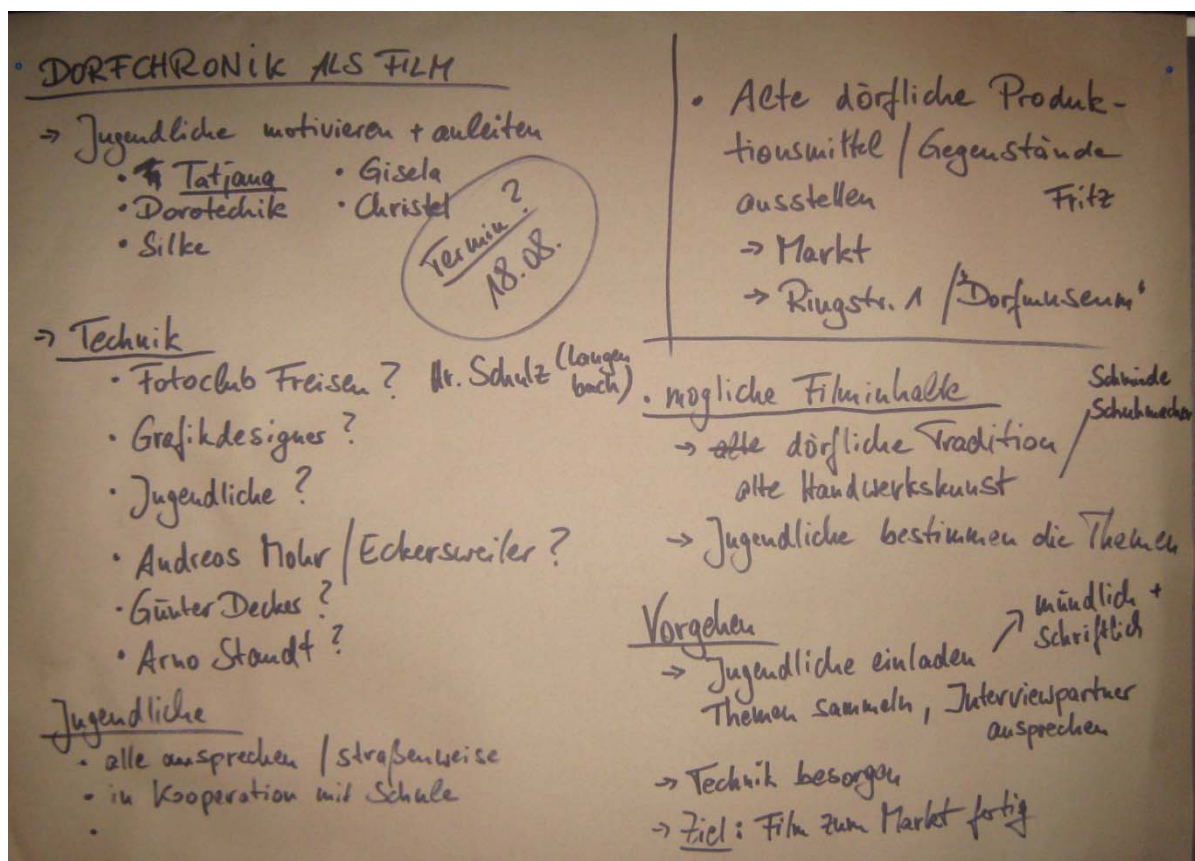 DORFCHRONIK ALS FILM
→ Jugendliche motivieren + anleiten
• Tatjana • Gisela
• Dorotechik • Christel
• Silke
Termin?
18.08.
→ Technik
• Fotoclub Freisen? Hr. Schulz (Langen
bach)
• Grafikdesigner?
• Jugendliche?
• Andreas Mohr / Eckersweiler?
• Günter Decker?
• Arno Staudt?
Jugendliche
• alle ansprechen / straßenweise
• in Kooperation mit Schule
•
• Alte dörfliche Produk-
tionsmittel / Gegenstände
ausstellen Fritz
→ Markt
→ Ringstr. 1 / "Dorfmuseum"
• mögliche Filminhalte
→ alte dörfliche Tradition
alte Handwerkskunst /
Schmiede
Schuhmacher
→ Jugendliche bestimmen die Themen
Vorgehen
→ Jugendliche einladen ↗ mündlich +
schriftlich
Themen sammeln, Interviewpartner
ansprechen
→ Technik besorgen
→ Ziel: Film zum Markt fertig